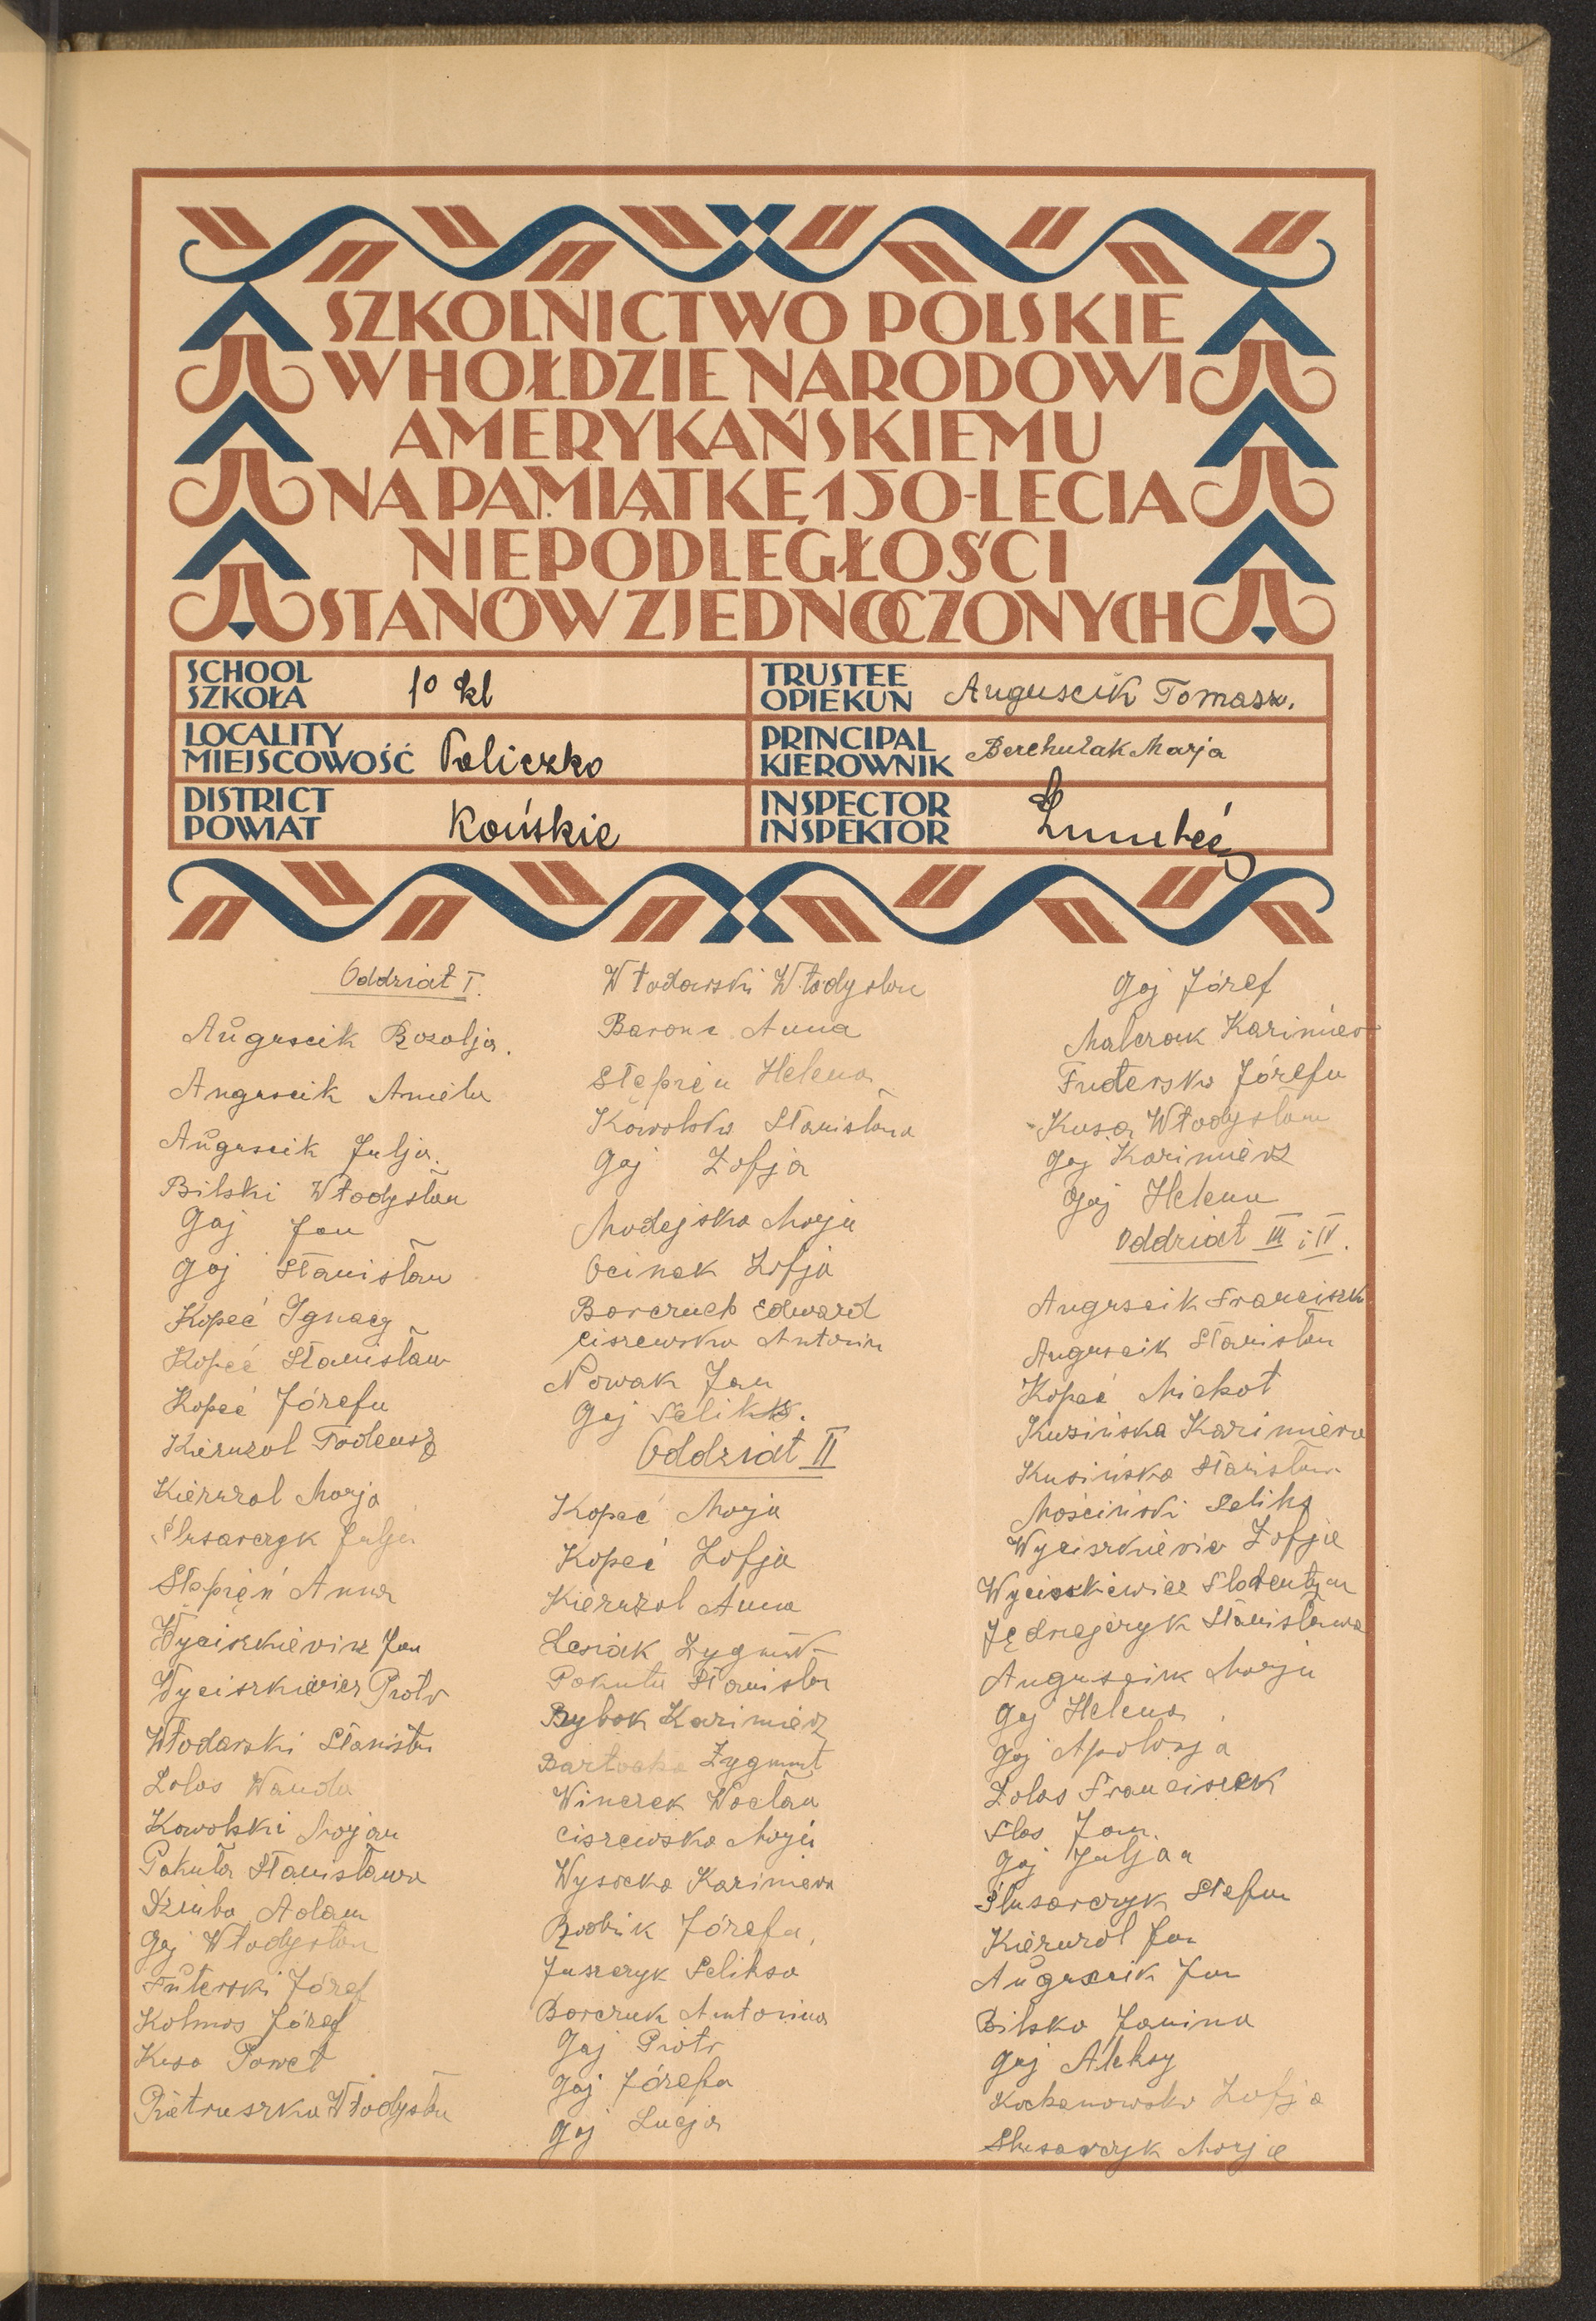 SZKOLNICTWO POLSKIE
W HOŁDZIE NARODOWI
AMERYKAŃSKIEMU
NA PAMIĄTKĘ 150-LECIA
NIEPODLEGŁOŚCI
STANÓW ZJEDNOCZONYCH
SCHOOL
SZKOŁA
1º kl
TRUSTEE
OPIEKUN
Auguscik Tomasz.
LOCALITY
MIEJSCOWOŚĆ
Paliczko
PRINCIPAL
KIEROWNIK
Berchułak Marja
DISTRICT
POWIAT
Końskie
INSPECTOR
INSPEKTOR
Oddział I.
Auguscik Rozalja.
Auguscik Aniela
Auguscik Julja.
Bilski Władysław
Gaj Jan
Gaj Stanisław
Kopeć Ignacy
Kopeć Stanisław
Kopeć Józefa
Kieruzal Tadeusz
Kieruzal Marja
Ślusarczyk Julja
Stępień Anna
Wyciszkiewicz Jan
Wyciszkiewicz Piotr
Włodarski Stanisław
Zolas Wanda
Kowalski Marjan
Pakuła Stanisława
Dziuba Adam
Gaj Władysław
Futerski Józef
Kolmos Józef
Kusa Paweł
Pietruszka Władysław
Włodarski Władysław
Anna
Stępień Helena
Kowalska Stanisława
Gaj Zofja
Modejska Marja
Ocinek Zofja
Borczuch Edward
Ciszewska Antonina
Nowak Jan
Gaj Feliks.
Oddział II
Kopeć Marja
Kopeć Zofja
Kieruzal Anna
Lesiak Zygmunt
Pakuła Stanisław
Rybak Kazimierz
Zygmunt
Winczek Wacław
Ciszewska Marja
Wysocka Kazimiera
Józefa,
Juszczyk Feliksa
Borczuk Antonina
Gaj Piotr
Gaj Józefa
Gaj Lucja
Gaj Józef
Malczak Kazimierz
Futerska Józefa
Kusa Władysław
Gaj Kazimierz
Gaj Helena
Oddział III i IV.
Auguscik Franciszk
Auguscik Stanisław
Kopeć Michał
Kusińska Kazimiera
Kusińska Stanisława
Mościński Feliks
Wyciszkiewicz Zofja
Wyciszkiewicz Florentyna
Jędrzejczyk Stanisława
Auguscik Marja
Gaj Helena.
Gaj Apolonja
Zolas Franciszek
Slas Jan.
Gaj Juljan
Ślusarczyk Stefan
Kieruzal Jan
Auguscik Jan
Bilska Janina
Gaj Aleksy
Kochanowska Zofja
Slusarczyk Marja